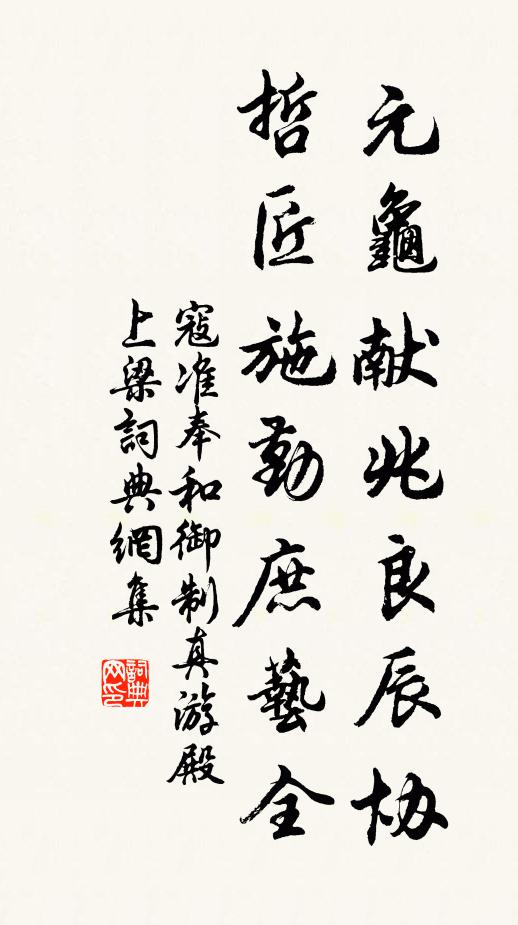 元龜献兆良辰协
哲匠施勤庶藝全
寇准奉和御制真游殿
上梁詞典網集
詞典网印